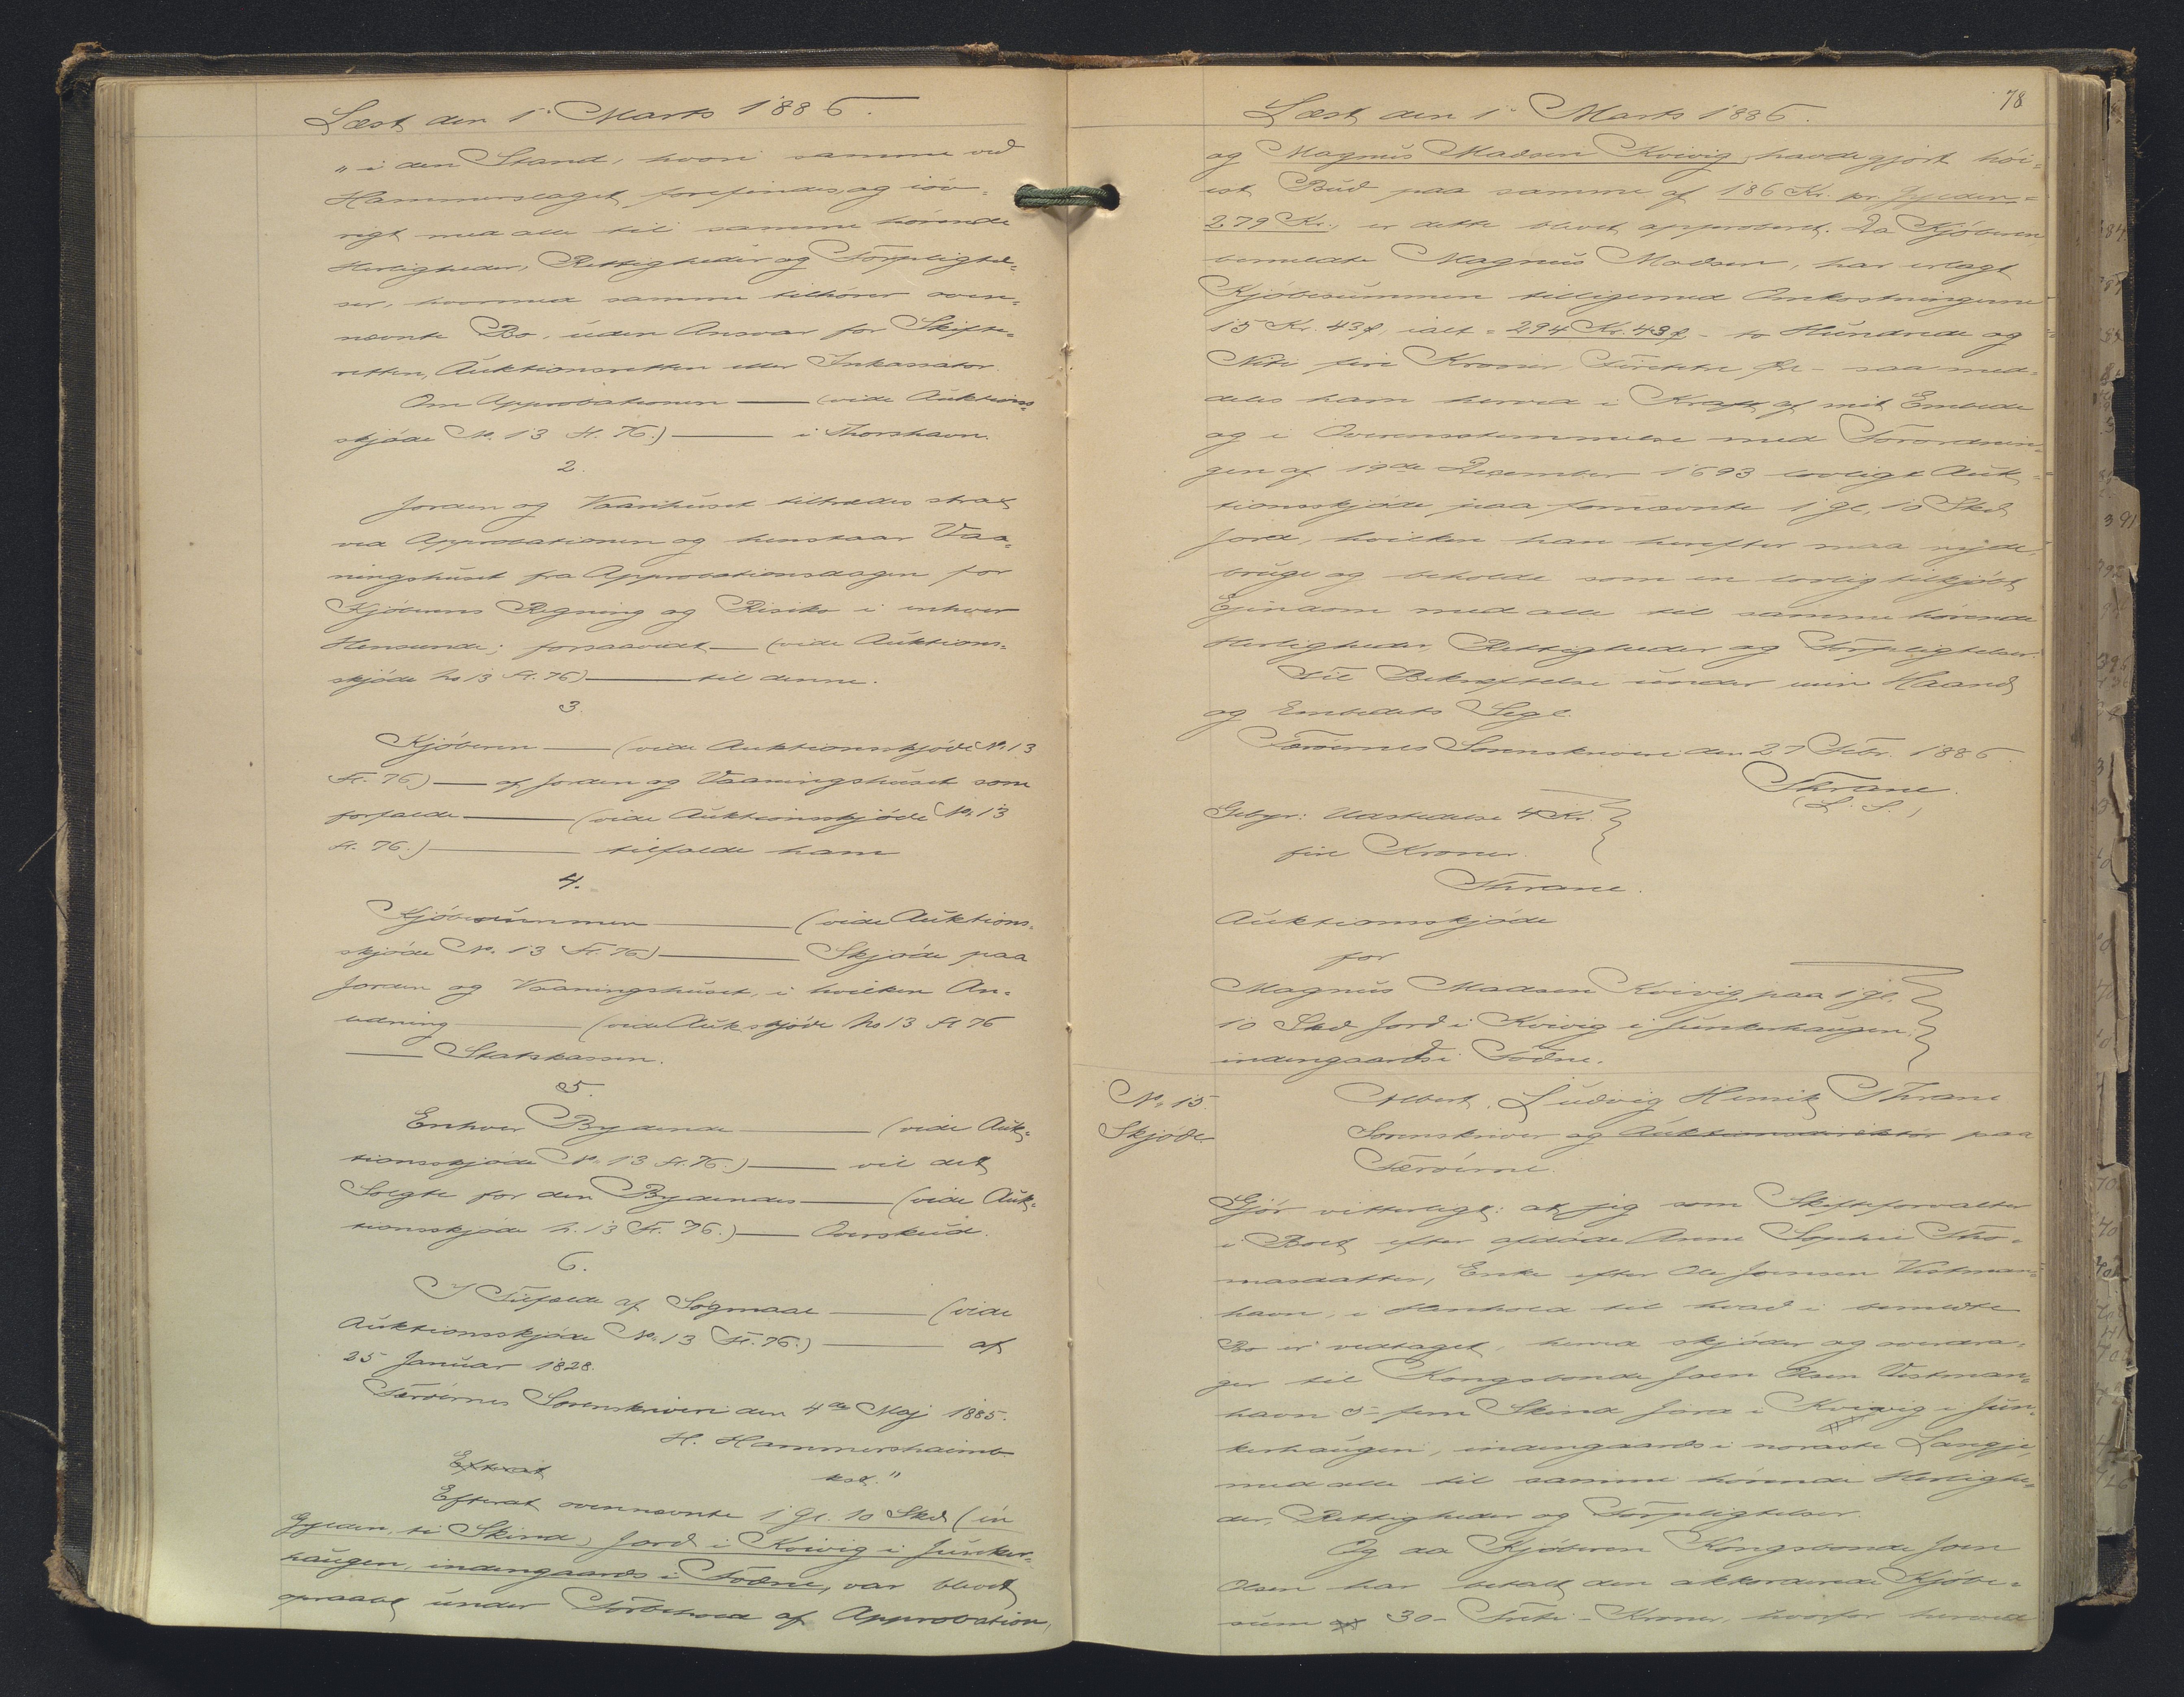 Læst den 1. Marts 1886.
" i den Stand, hvori samme ved
Hammerslaget forefindes, og iöv-
rigt med alle til samme hørende
Herligheder, Rettigheder og Forpligtel-
ser, hvormed samme tilhører oven-
nævnte Bo, uden Ansvar for Skifte-
retten, Auktionsretten eller Inkassator.
Om Approbationen — (vide Auktions-
skjøde No. 13 Fl. 76.) — i Thorshavn.
2.
Jorden og Vaanhuset tiltrædes strax
ved Approbationen og henstaar Vaa-
ningshuset fra Approbationsdagen for
Kjøberens Regning og Risiko i enhver
Henseende; forsaavidt — (vide Auktions-
skjøde No 13 Fl. 76) — til denne.
3.
Kjøberen — (vide Auktionsskjøde No. 13
Fl. 76) — af Jorden og Vaaningshuset som
forfalde — (vide Auktionsskjøde No. 13
Fl. 76.) — tilfalde ham
4.
Kjøbesummen — (vide Auktions-
skjøde No. 13 Fl. 76) — Skjøde paa
Jorden og Vaaningshuset, i hvilken An-
ledning — (vide Aukskjøde No 13 Fl 76
— Statskassen.
5.
Enhver Bydende — (vide Auk-
tionsskjøde No. 13 Fl. 76.) — vil det
Solgte for den Bydendes — (vide Auk-
tionsskjøde N. 13 Fl. 76.) — Overskud.
6.
I Tilfælde af Søgmaal — (vide
Auktionsskjøde No. 13 Fl. 76.) — af
25 Januar 1828.
Færøernes Sorenskriveri den 4de Maj 1885.
H. Hammershaimb
kst."
Efterat
Efterat ovennævnte 1 Gl. 10 Skd (én
Gylden, ti Skind) Jord i Kvivig i Junker-
haugen, indengaards i Todne, var blevet
opraabt under Forbehold af Approbation,
78
Læst den 1. Marts 1886.
og Magnus Madsen Kvivig havde gjort höi-
est Bud paa samme af 186 Kr. pr Gylden =
279 Kr., er dette blevet approberet. Da Kjøberen
bemeldte Magnus Madsen, har erlagt
Kjøbesummen tilligemed Omkostningerne
15 Kr. 43 ø, ialt = 294 Kr. 43 ø - to Hundrede og
Niti fire Kroner, Firetitre Øre - saa med-
deles ham herved i Kraft af mit Embede
og i Overensstemmelse med Forordnin-
gen af 19de December 1693 lovligt Auk-
tionsskjøde paa fornævnte 1 gl. 10 Skd
Jord, hvilken han herefter maa nyde,
bruge og beholde som en lovlig tilkjøbt
Ejendom med alle til samme hørende
Herligheder, Rettigheder og Forpligtelser.
Til Bekræftelse under min Haand
og Embedets Segl.
Færøernes Sorenskriveri den 27 Febr. 1886.
Thrane.
(L. S.)
Gebyr: Udstedelse 4 Kr.
fire Kroner.
Thrane.
Auktionsskjøde
for
Magnus Madsen Kvivig paa 1 gl.
10 Skd Jord i Kvivig i Junkerhaugen,
indengaards i Todne.
No. 15.
Skjøde
Albert Ludvig Henrik Thrane
Sorenskriver og Auktionsdirektør paa
Færöerne.
Gjör vitterligt: at jeg som Skifteforvalter
i Boet efter afdøde Anne Sophie Tho-
masdatter, Enke efter Ole Joensen Vestman-
havn, i Henhold til hvad i bemeldte
Bo er vedtaget, herved skjøder og overdra-
ger til Kongsbonde Joen Olsen Vestman-
havn 5 - fem Skind Jord i Kvivig i Jun-
kerhaugen, indengaards i noraste Langje,
med alle til samme hørende Herlighe-
der, Rettigheder og Forpligtelser.
Og da Kjøberen Kongsbonde Joen
Olsen har betalt den akkorderede Kjøbe-
sum 30 - Treti - Kroner, hvorfor herved